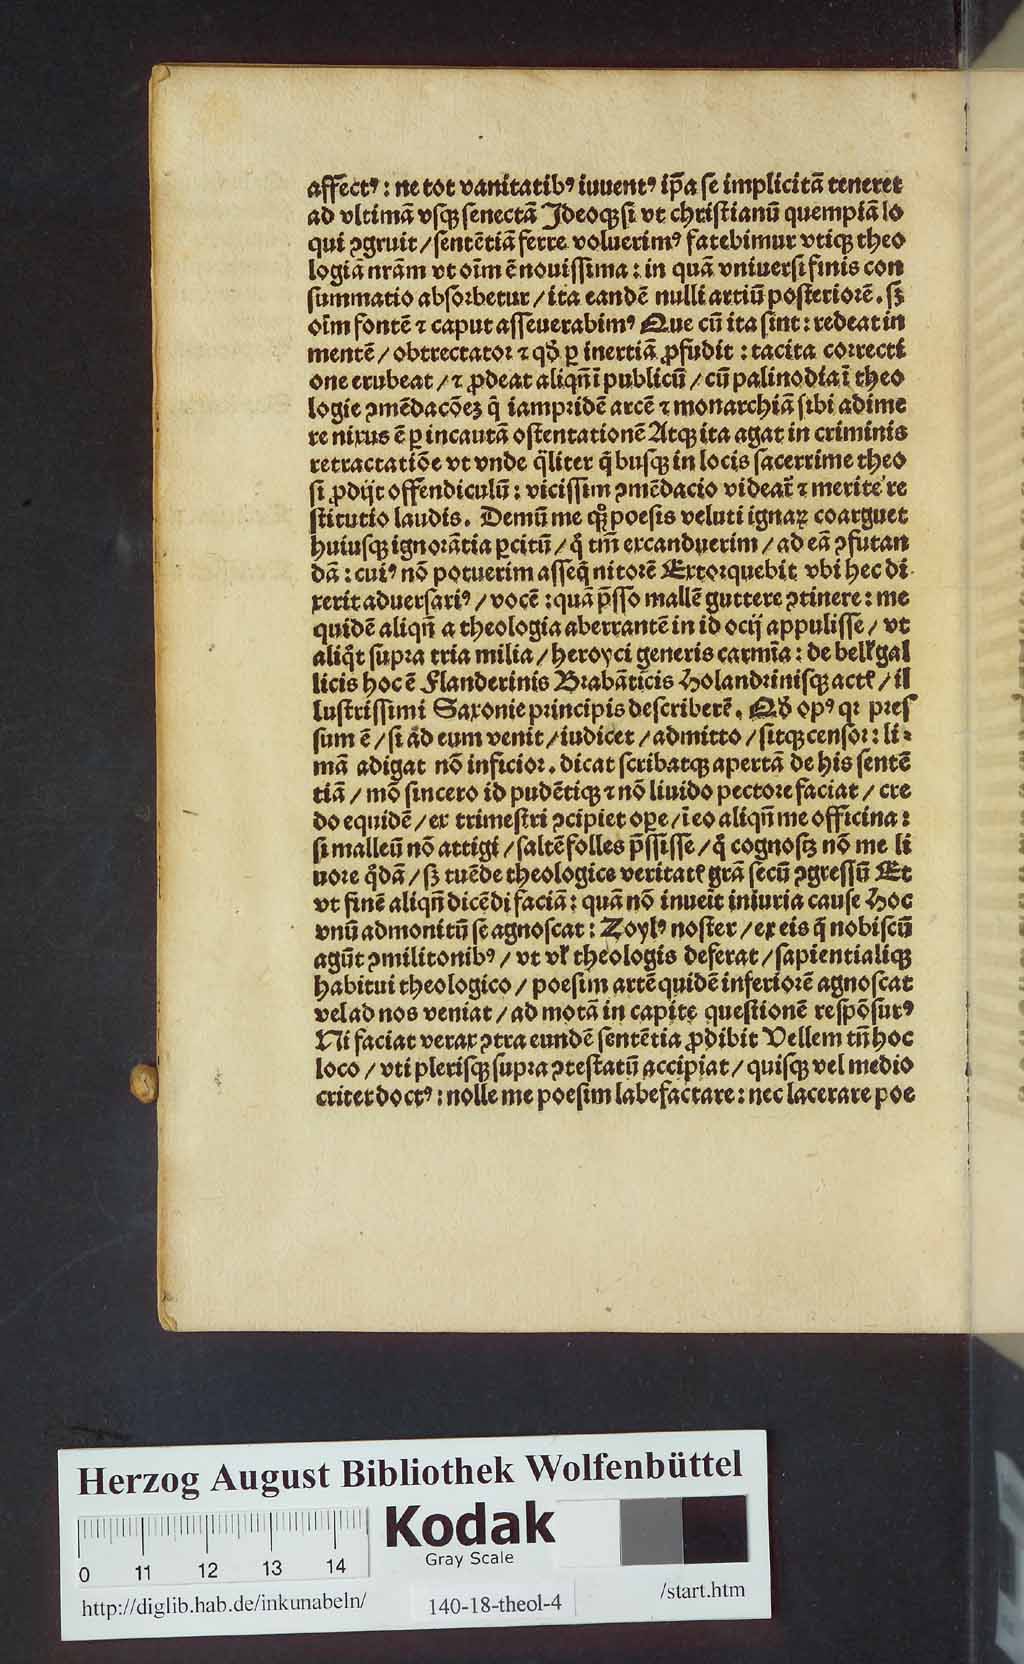 affectꝰ : ne tot vanitatibꝰ iuuentꝰ ip̄a se implicitā teneret
ad vltimā vsqꝫ senectā Ideoqꝫ si vt christianū quempiā lo
qui ꝯgruit / sentētiā ferre voluerimꝰ fatebimur vtiqꝫ theo
logiā nrām vt oīm ē nouissima : in quā vniuersi finis con
summatio absorbetur / ita eandē nulli artiū posteriorē . sꝫ
oīm fontē ⁊ caput asseuerabimꝰ Que cū ita sint : redeat in
mentē / obtrectator ⁊ qd̄ ꝑ inertiā ꝓfudit : tacita correcti
one erubeat / ⁊ ꝓdeat aliqn̄ ī publicū / cū palinodia ī theo
logie ꝯmēdacōeꝫ q̄ iampridē arcē ⁊ monarchiā sibi adime
re nixus ē ꝑ incautā ostentationē Atqꝫ ita agat in criminis
retractatiōe vt vnde q̄liter q̄busqꝫ in locis sacerrime theo
si ꝓdijt offendiculū : vicissim ꝯmēdacio videat̄ ⁊ merite re
stitutio laudis . Demū me qꝫ poesis veluti ignaꝝ coarguet
huiusqꝫ ignorātia ꝑcitū / ꝙ tm̄ excanduerim / ad eā ꝯfutan
dā : cuiꝰ nō potuerim asseq̄ nitorē Extorquebit vbi hec di
xerit aduersariꝰ / vocē : quā p̄sso mallē gutture ꝯtinere : me
quidē aliqn̄ a theologia aberrantē in id ocij appulisse / vt
aliqͦt supra tria milia / heroyci generis carmīa : de bellꝭ gal
licis hoc ē Flanderinis Brabāticis Holandrinisqꝫ actꝭ / il
lustrissimi Saxonie principis describerē . Qd̄ opꝰ qꝛ pres
sum ē / si ad eum venit / iudicet / admitto / sitqꝫ censor : li⸗
mā adigat nō inficior . dicat scribatqꝫ apertā de his sentē
tiā / mō sincero id pudētiqꝫ ⁊ nō liuido pectore faciat / cre
do equidē / ex trimestri ꝯcipiet oꝑe / ī eo aliqn̄ me officina :
si malleū nō attigi / saltē folles p̄ssisse / ꝙ cognoscꝫ nō me li
uore q̄dā / sꝫ tuēde theologice veritatꝭ grā secū ꝯgressū Et
vt finē aliqn̄ dicēdi faciā : quā nō inueīt iniuria cause Hoc
vnū admonitū se agnoscat : Zoylꝰ noster / ex eis q̄ nobiscū
agūt ꝯmilitonibꝰ / vt vl̓ theologis deferat / sapientialiqꝫ
habitui theologico / poesim artē quidē inferiorē agnoscat
vel ad nos veniat / ad motā in capite questionē respōsurꝰ
Ni faciat verax ꝯtra eundē sentētia ꝓdibit Vellem tn̄ hoc
loco / vti plerisqꝫ supra ꝯtestatū accipiat / quisqꝫ vel medio
criter doctꝰ : nolle me poesim labefactare : nec lacerare poe
Herzog August Bibliothek Wolfenbüttel
Kodak
Gray Scale
0 11 12 13 14
http://diglib.hab.de/inkunabeln/ 140-18-theol-4 /start.htm